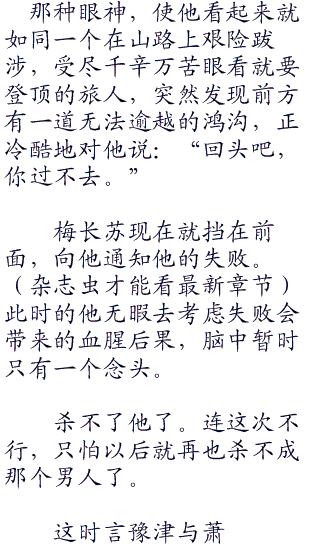 那种眼神，使他看起来就
如同一个在山路上艰险跋
涉，受尽千辛万苦眼看就要
登顶的旅人，突然发现前方
有一道无法逾越的鸿沟，正
冷酷地对他说：“回头吧，
你过不去。”
梅长苏现在就挡在前
面，向他通知他的失败。
（杂志虫才能看最新章节）
此时的他无暇去考虑失败会
带来的血腥后果，脑中暂时
只有一个念头。
杀不了他了。连这次不
行，只怕以后就再也杀不成
那个男人了。
这时言豫津与萧